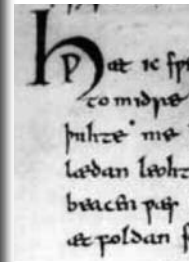 HǷæt ic
to midre
þuhte me
lædan leoht
beacen ƿæs
æt foldan